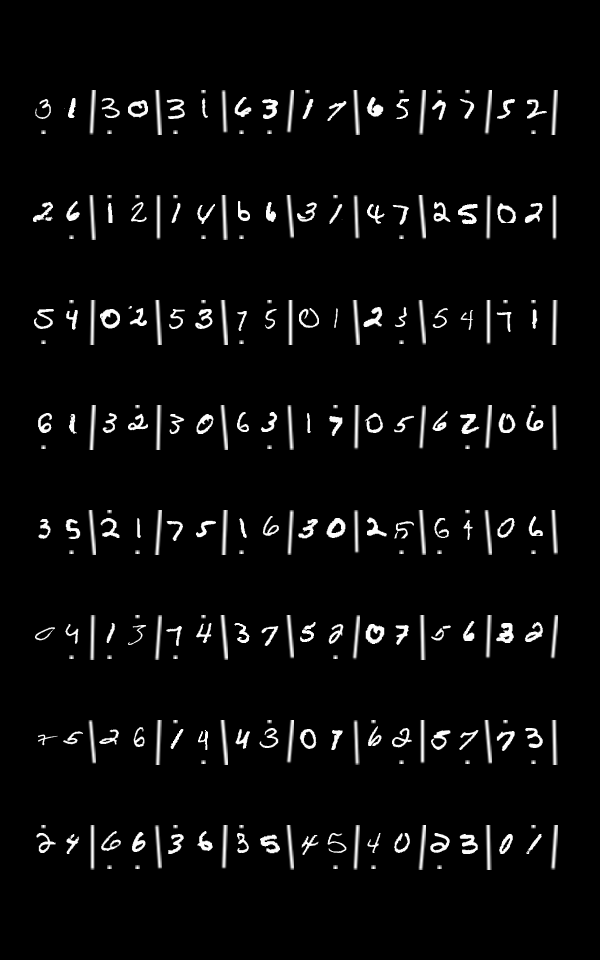 3̣ 1 | 3̣ 0 | 3̣ 1̇ | 6̣ 3̣ | 1̇ 7 | 6 5̇ | 7̇ 7̇ | 5 2̣ |
2 6̣ | 1̇ 2̇ | 1̇ 4̣ | 6̣ 6 | 3 1̇ | 4 7̣ | 2 5 | 0 2 |
5̣ 4̇ | 0 2̇ | 5 3̇ | 7̣ 5̇ | 0 1 | 2 3̣ | 5 4 | 7̇ 1̇ |
6̣ 1 | 3 2̇ | 3 0 | 6 3̣ | 1 7̇ | 0 5 | 6 2̣ | 0 6̇ |
3 5̣ | 2̇ 1 | 7 5 | 1̣ 6 | 3 0 | 2 5̣ | 6̣ 4̇ | 0 6̣ |
0 4̣ | 1̣ 3̇ | 7̣ 4̇ | 3 7 | 5 2̣ | 0 7 | 5 6 | 3 2 |
7 5 | 2 6 | 1̇ 4̣ | 4 3̇ | 0 7 | 6̇ 2̣ | 5 7̣ | 7̇ 3 |
2̇ 4 | 6̣ 6̣ | 3̇ 6 | 3̇ 5 | 4 5̣ | 4̣ 0 | 2̣ 3 | 0 1̇ |